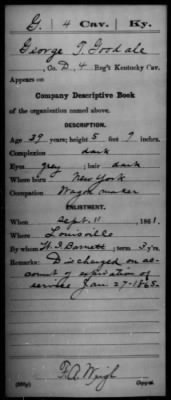 G. | 4 Cav. | Ky.
George T. Goodale
, Co. D, 4 Reg't Kentucky Cav.
Appears on
Company Descriptive Book
of the organization named above.
DESCRIPTION.
Age 39 years; height 5 feet 9 inches.
Complexion dark
Eyes grey; hair dark
Where born New York
Occupation Wagon maker
ENLISTMENT.
When Sept. 11, 1861.
Where Louisville
By whom H. I. Barnett; term 3 y'rs.
Remarks: Discharged on ac-
count of expiration of
service Jan 27-1865.
Copyist.